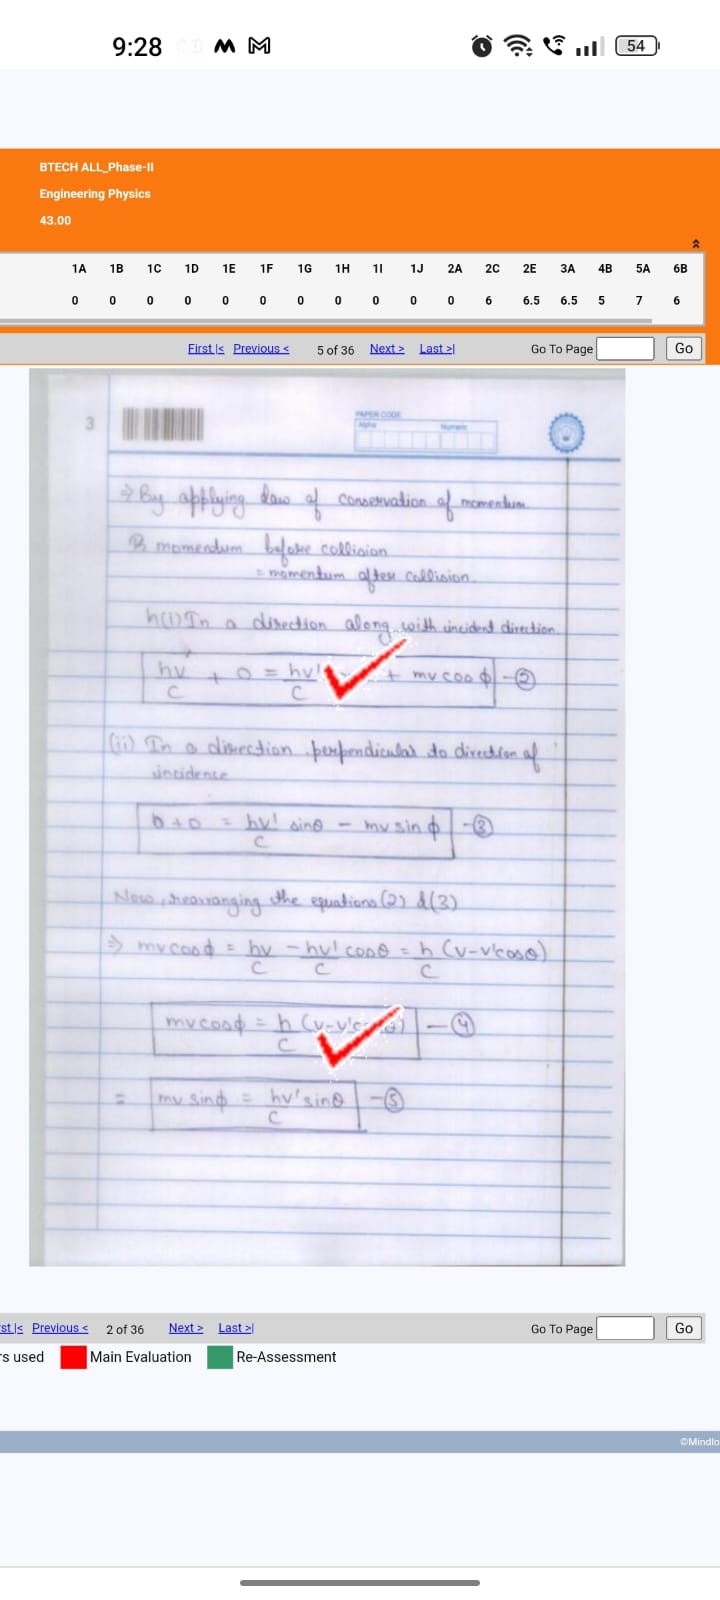 9:28
54
BTECH ALL_Phase-II
Engineering Physics
43.00
1A 1B 1C 1D 1E 1F 1G 1H 1I 1J 2A 2C 2E 3A 4B 5A 6B
0 0 0 0 0 0 0 0 0 0 0 6 6.5 6.5 5 7 6
First |< Previous < 5 of 36 Next > Last >| Go To Page Go
3
PAPER CODE
Alpha Numeric
⇒ By applying law of conservation of momentum
momentum before collision
= momentum after collision
(i) In a direction along with incident direction
hν/C + 0 = hν'/C + mv cos ϕ -②
(ii) In a direction perpendicular to direction of
incidence
0 + 0 = hν'/C sinθ - mv sin ϕ -③
Now, rearranging the equations (2) & (3)
⇒ mv cosϕ = hν/C - hν'/C cosθ = h/C (ν-ν'cosθ)
mv cosϕ = h/C (ν-ν' θ) -④
= mv sinϕ = hν'sinθ/C -⑤
st |< Previous < 2 of 36 Next > Last >| Go To Page Go
rs used Main Evaluation Re-Assessment
©Mindlo